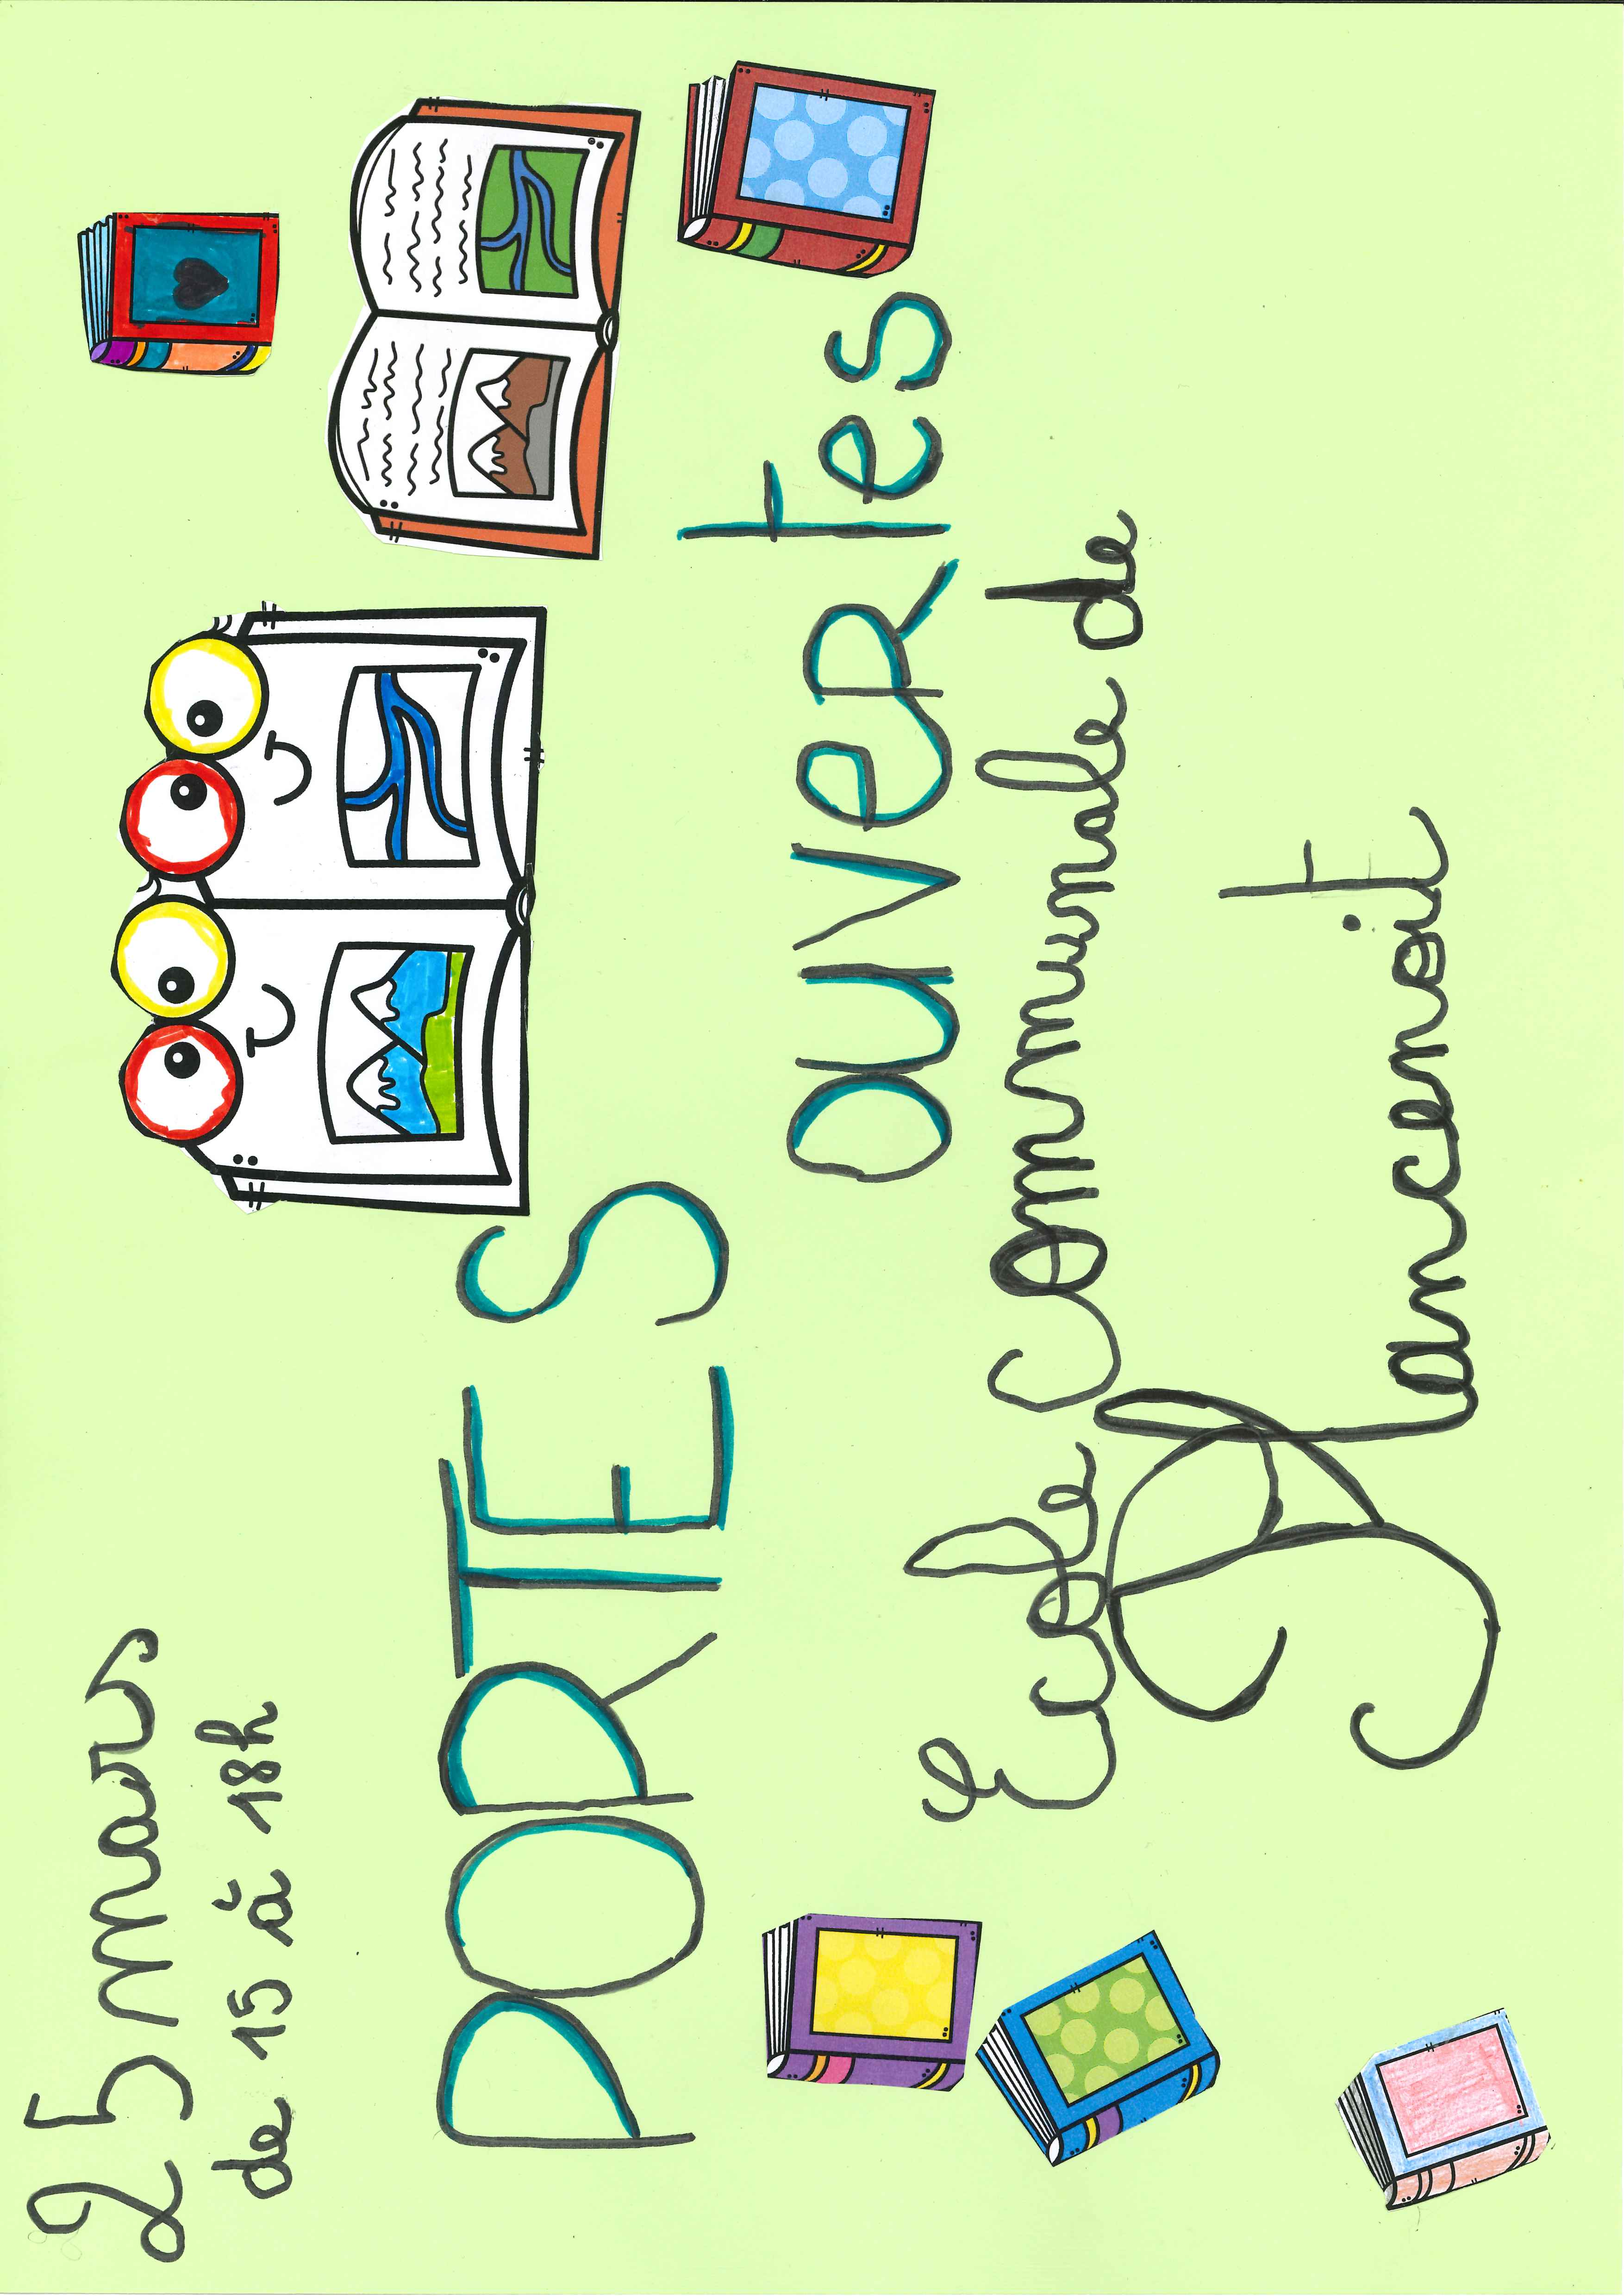 25 mars
de 15 à 18h
PORTES
OUVeRtes
Ecole communale de
Plancenoit